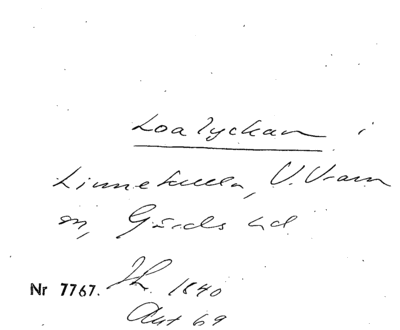 Loalyckan i
Linnekulla, V. Vram
sn, Gärds hd
Nr 7767. Sk. 1840
Akt 69